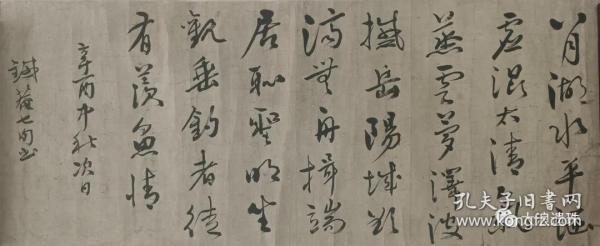 八月湖水平涵
虛混太清氣
蒸雲夢澤波
撼岳陽城欲
濟無舟楫端
居耻聖明坐
觀垂釣者徒
有羨魚情
辛酉中秋次日
孔夫子旧书网